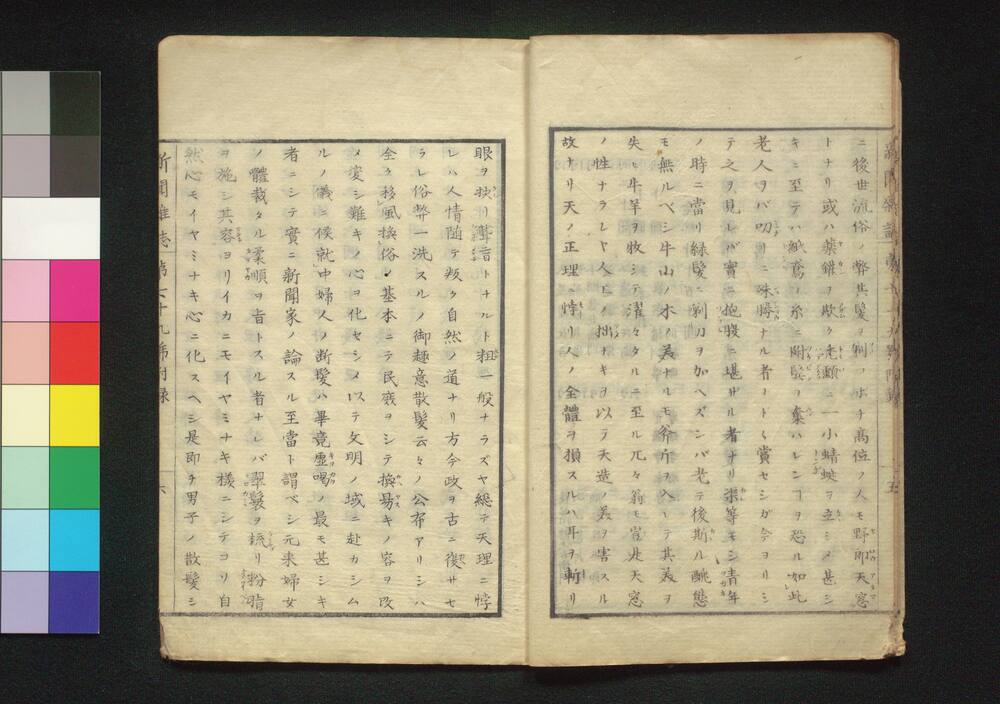 ニ後世流俗ノ弊其髪ヲ剃コボチ高位ノ人モ野郎天窓
トナリ或ハ薬鑵ヲ欺ク禿顱ニ一小蜻蜓ヲ立シメ甚シ
キニ至テハ紙鳶ノ糸ニ附髪ヲ棄ハレンヿヲ恐ル如此
老人ヲバ叨リニ殊勝ナル者ノトヽ賞セシガ今ヨリシ
テ之ヲ見レバ實ニ抱腹ニ堪サル者ナリ渠等モシ青年
ノ時ニ當リ緑髪ニ剃刀ヲ加ヘズンバ老テ後斯ル醜態
モ無ルベシ牛山ノ木ノ美ナルモ斧斤ヲ入レテ其美ヲ
失ヒ牛羊ヲ牧シテ濯々タルニ至ル兀々翁モ豈是天窓
ノ性ナラレヤ人工ノ拙ナキヲ以テ天造ノ美ヲ害スル
故ナリ天ノ正理ニ悖リ人ノ全體ヲ損スルハ耳ヲ斬リ
五
眼ヲ抉リ聾盲トナルト粗一般ナラズヤ総テ天理ニ悖
レハ人情随テ叛ク自然ノ道ナリ方今政ヲ古ニ復サセ
ラレ俗弊一洗スルノ御趣意散髪云々ノ公布アリシハ
全ク移風換俗ノ基本ニテ民衆ヲシテ換易キノ容ヲ改
メ変シ難キノ心ヨ化セシメ以テ文明ノ域ニ赴カシム
ルノ儀ニ候就中婦人ノ断髪ハ畢竟虚喝ノ最モ甚シキ
者ニシテ實ニ新聞家ノ論スル至當ト謂ベシ元来婦女
ノ體裁タル柔順ヲ旨トスル者ナレバ翠鬟ヲ梳リ粉脂
ヲ施シ其容ヨリイカニモイヤミナキ様ニシテコリ自
然心モイヤミナキ心ニ化スヘシ是即チ男子ノ散髪シ
新聞雑誌 第六十九号附録 六